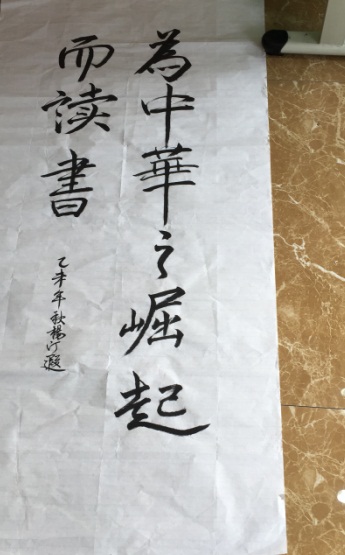 為中華之崛起
而读書
乙未年秋楊汀遐